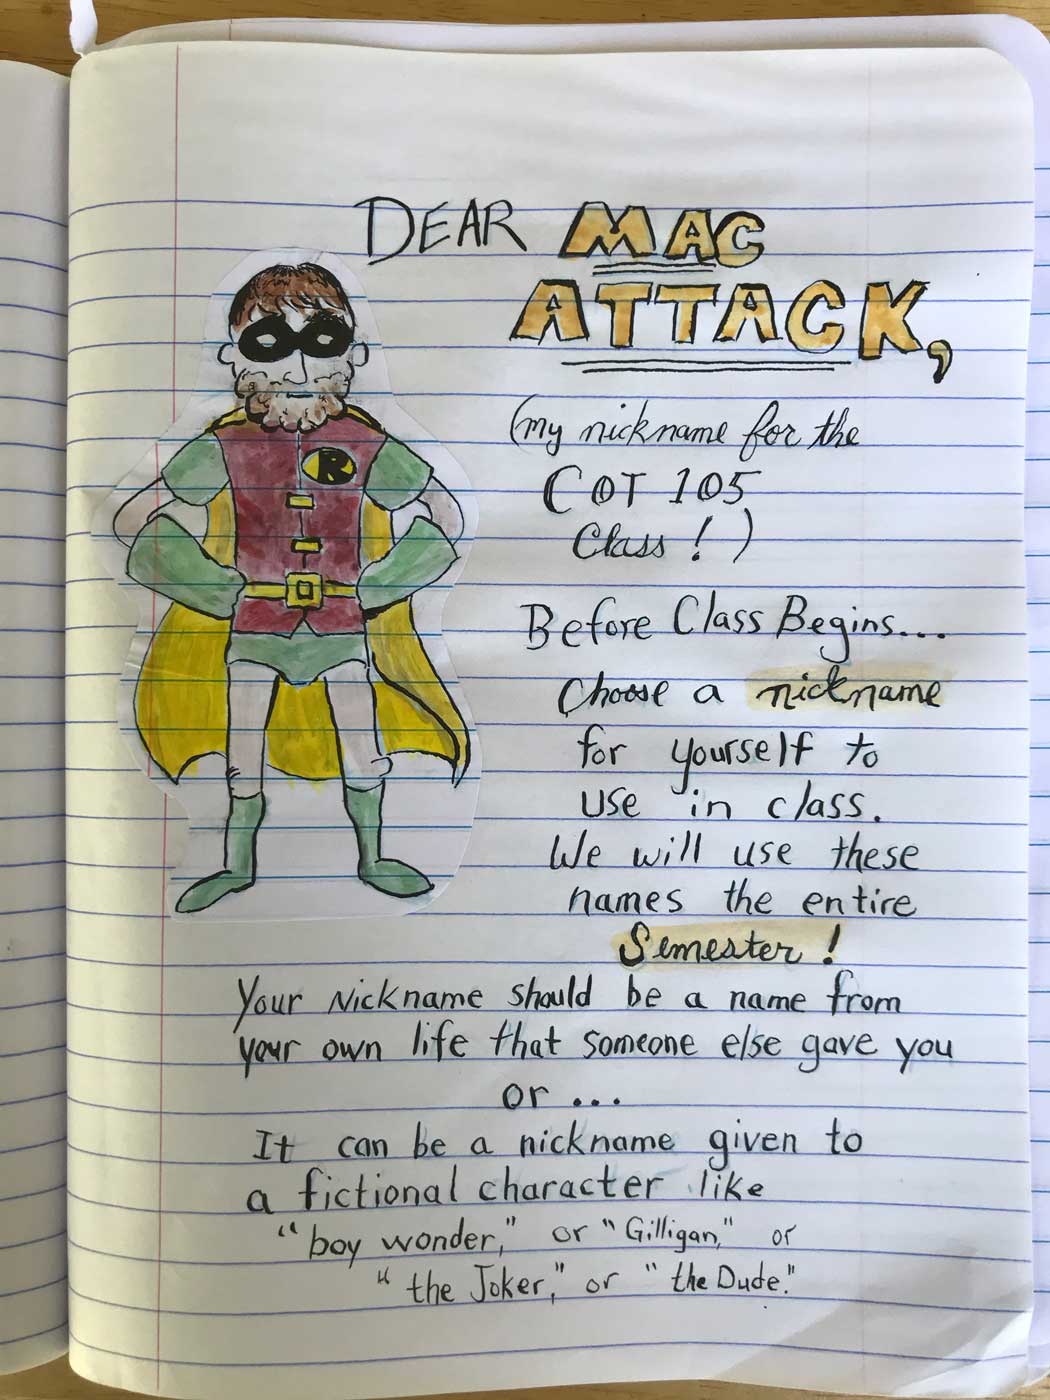 DEAR MAC
ATTACK,
(my nickname for the
COT 105
Class!)
R
Before Class Begins...
Choose a nickname
for yourself to
use in class.
We will use these
names the entire
Semester!
Your Nickname should be a name from
your own life that someone else gave you
or ...
It can be a nickname given to
a fictional character like
"boy wonder," or "Gilligan," or
"the Joker," or "the Dude."